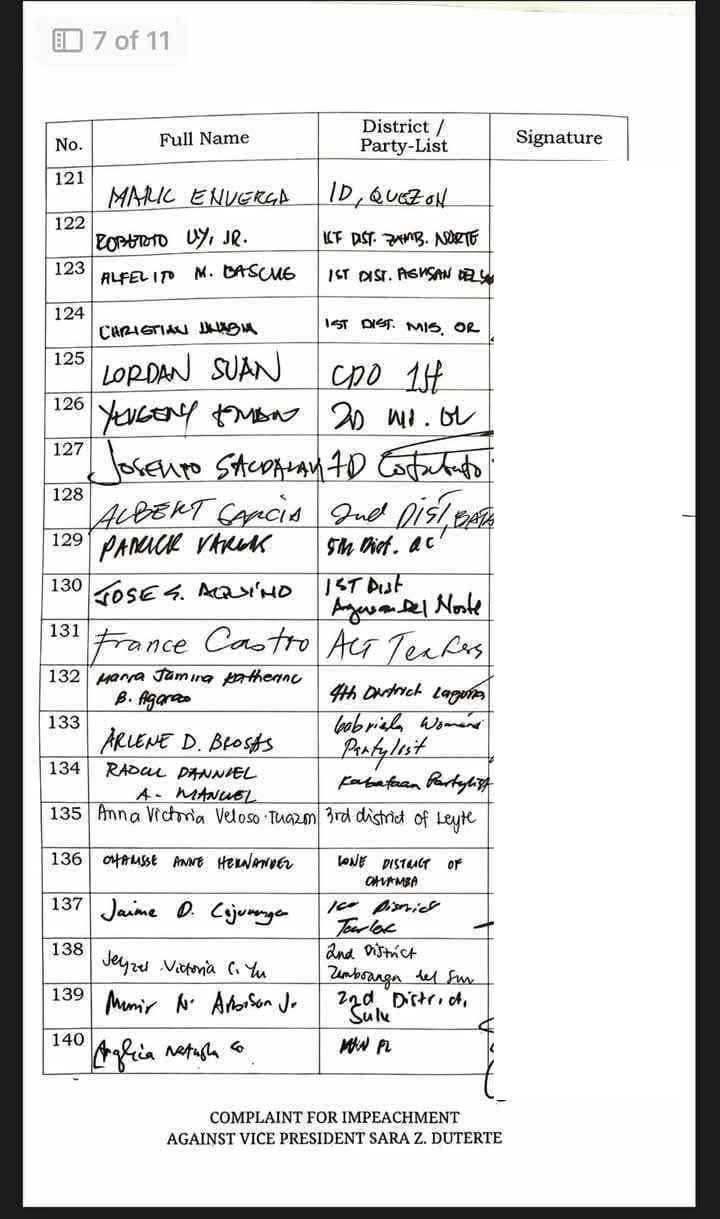 7 of 11
No. Full Name District / Party-List Signature
121 MARK ENVERGA 1D, QUEZON
122 ROBERTO UY, JR. 1ST DIST. ZAMB. NORTE
123 ALFELITO M. BASCUG 1ST DIST. AGUSAN DEL
124 CHRISTIAN UNABIA 1ST DIST. MIS. OR
125 LORDAN SUAN CDO 1st
126 YEVGENY EMANO 2D MI. OR
127 JOSELITO SACDALAN 1D Cotabato
128 ALBERT GARCIA 2nd DIST, BATA
129 PATRICK VARGAS 5th Dist. QC
130 JOSE S. AQUINO 1ST Dist
Agusan Del Norte
131 France Castro ACT Teachers
132 Maria Jamina Katherine
B. Agarao 4th District Laguna
133 ARLENE D. BROSAS Gabriela Women's
Partylist
134 RAOUL DANNIEL
A. MANUEL Kabataan Partylist
135 Anna Victoria Veloso-Tuazon 3rd district of Leyte
136 CHARISSE ANNE HERNANDEZ LONE DISTRICT OF
CALAMBA
137 Jaime D. Cojuangco 1st District
Tarlac
138 Jeyzel Victoria C. Yu 2nd District
Zamboanga del Sur
139 Munir N. Arbison Jr. 2nd District,
Sulu
140 Anglica Natasha Co BHW PL
COMPLAINT FOR IMPEACHMENT
AGAINST VICE PRESIDENT SARA Z. DUTERTE